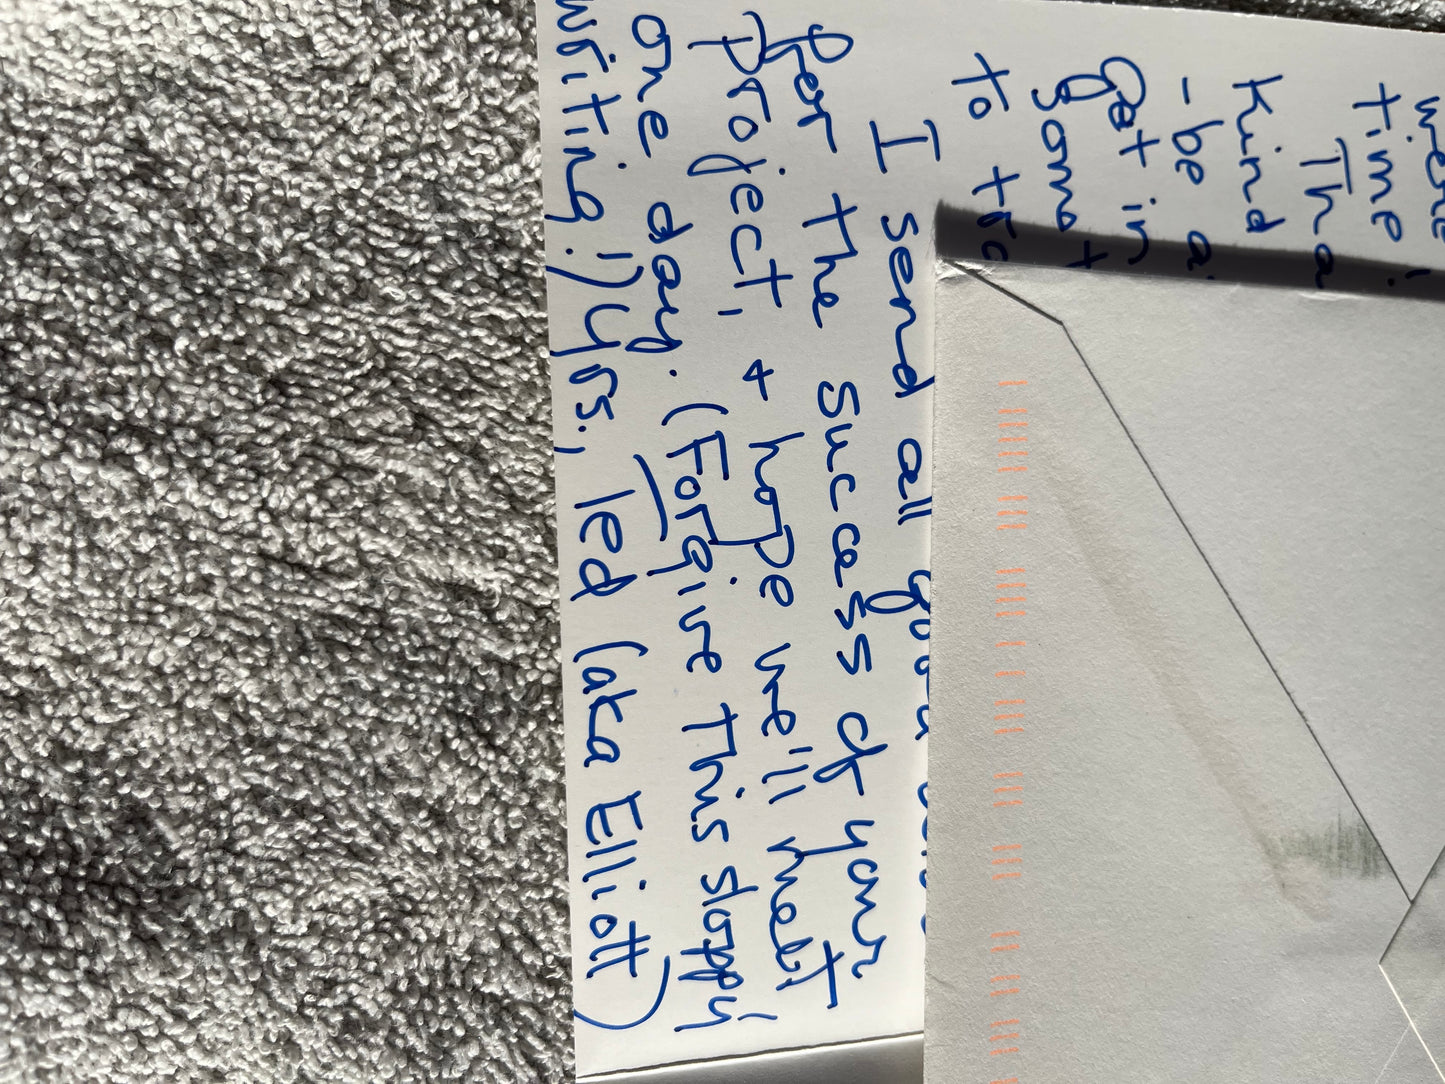 time
Tha
Kind
- be a
Get in
to
I send all
for the success of your
project, + hope we'll meet
one day. (Forgive This sloppy
writing!) Yrs., Ted (aka Elliott)